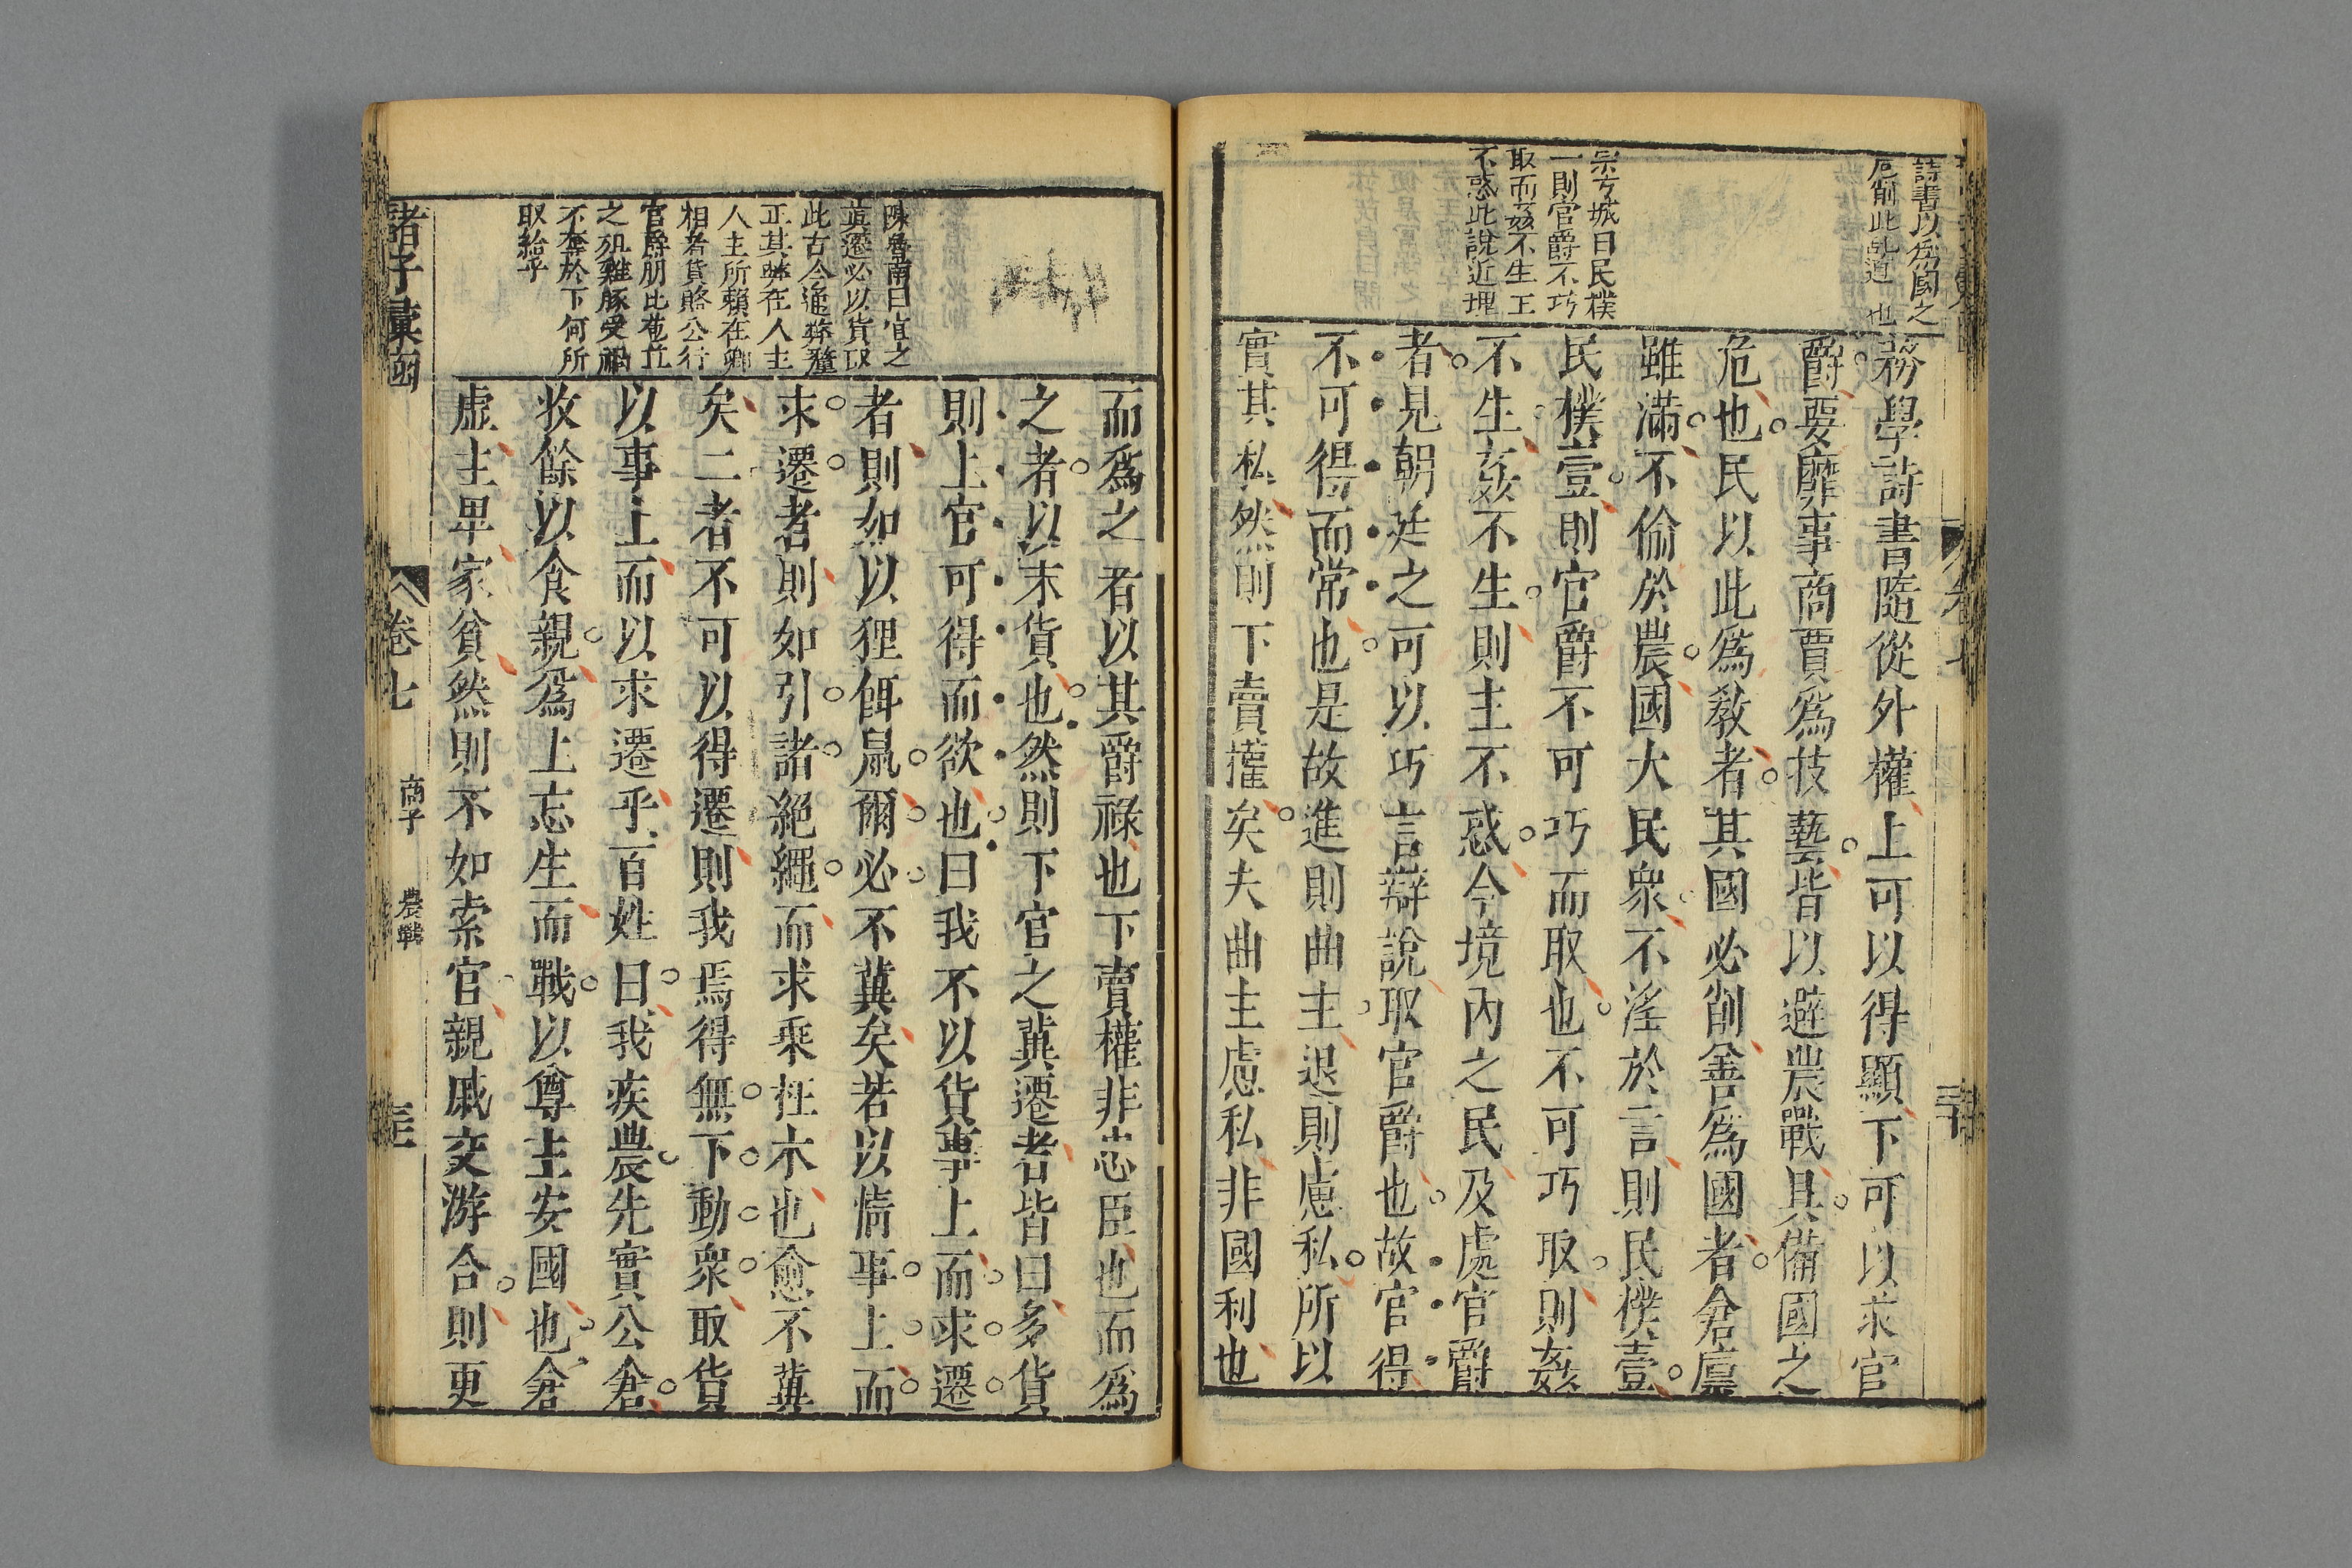 詩書以為國之
危削此乱道也
宗方城曰民樸
一則官爵不巧
取而姦不生主
不惑此說近理
務學詩書隨從外權上可以得顯下可以求官
爵要靡事商賈爲技藝皆以避農戰具備國之
危也民以此爲敎者其國必削善爲國者倉廩
雖滿不偷於農國大民衆不淫於言則民樸壹
民樸壹則官爵不可巧而取也不可巧取則姦
不生姦不生則主不惑今境內之民及處官爵
者見朝廷之可以巧言辯說取官爵也故官得
不可得而常也是故進則曲主退則慮私所以
實其私然則下賣權矣夫曲主慮私非國利也
陳魯南曰宜之
冀遷必以貨取
此古今通弊釐
正其弊在人主
人主所賴在卿
相者貨賂公行
官爵朋比苞苴
之列雞豚受祿
不奪於下何所
取給乎
而爲之者以其爵祿也下賣權非忠臣也而爲
之者以末貨也然則下官之冀遷者皆曰多貨
則上官可得而欲也曰我不以貨事上而求遷
者則如以狸餌鼠爾必不冀矣若以情事上而
求遷者則如引諸絕繩而求乘枉木也愈不冀
矣二者不可以得遷則我焉得無下動衆取貨
以事上而以求遷乎百姓曰我疾農先實公倉
收餘以食親爲上忘生而戰以尊主安國也倉
虛主卑家貧然則不如索官親戚交游合則更
諸子彙函
卷七
商子
農戰